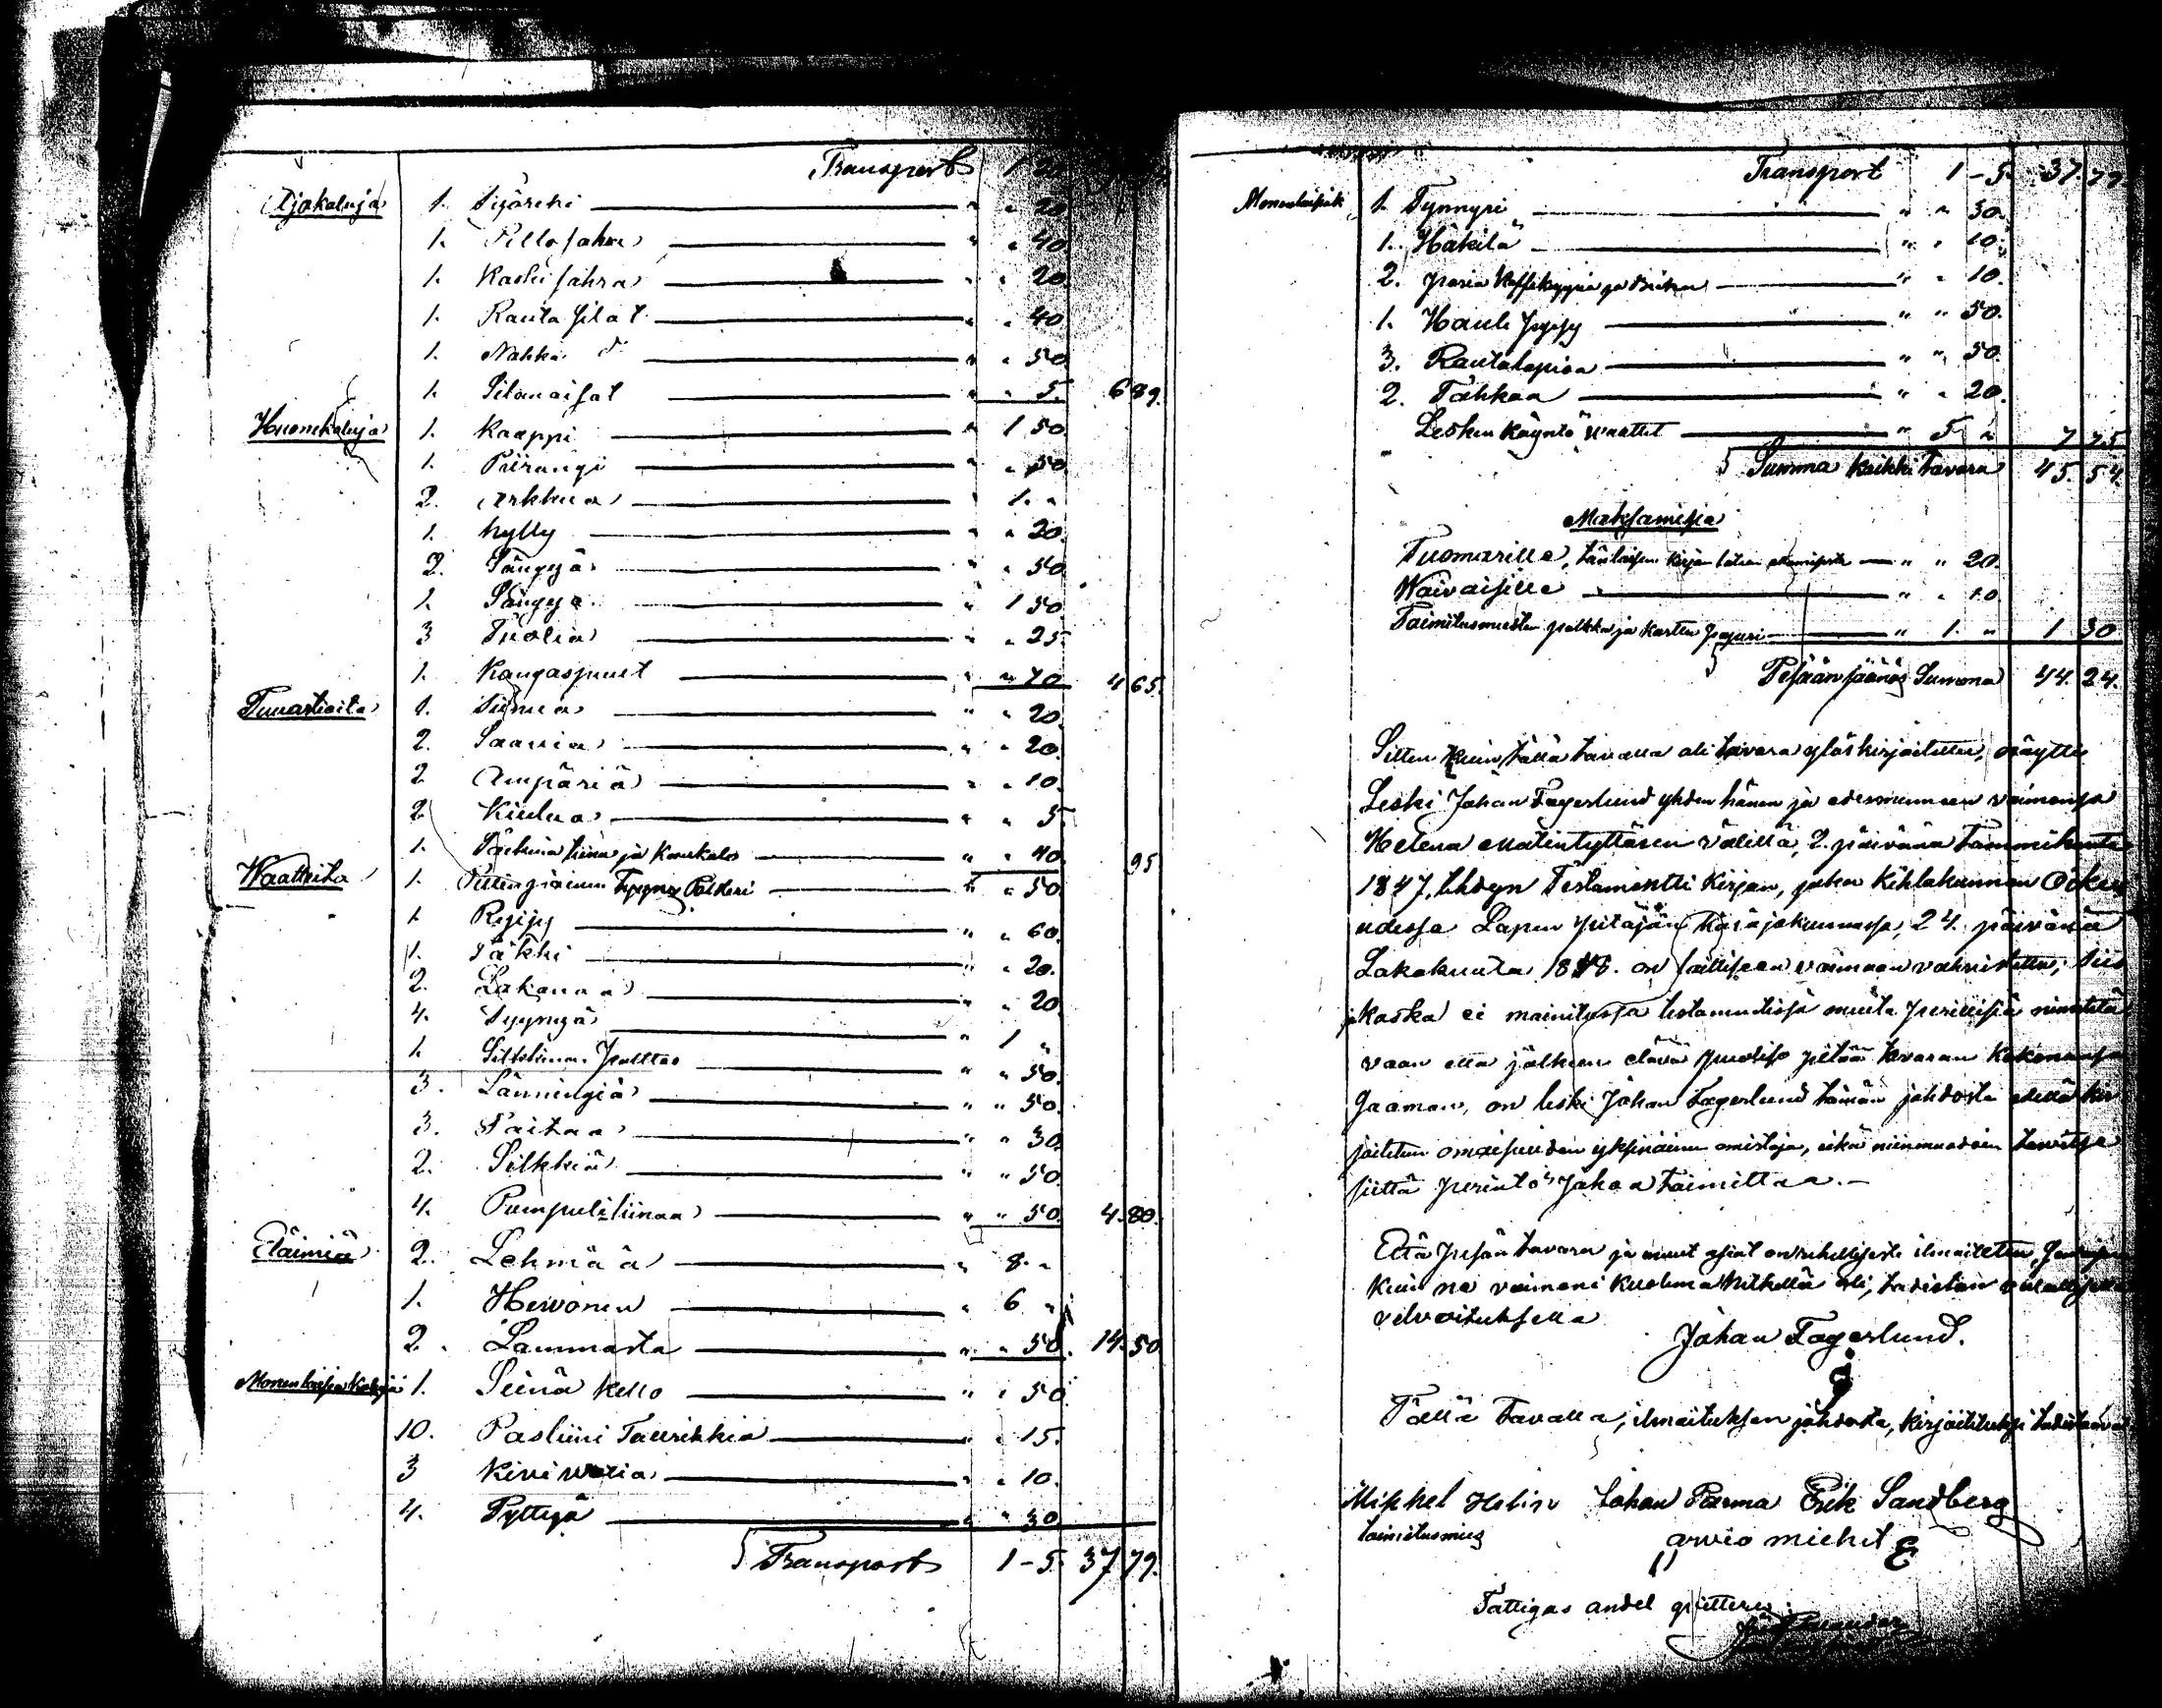 Transport 1 20
Ajokaluja 1. Sijäreki " " 20
1. Pelto sahra " " 40
1. Kaski sahra " " 20
1. Rauta silat " " 40
1. Nahka d° " " 50
1. Silonaisat " " 5. 6 89.
Huonekaluja 1. Kaappi " 1 50
1. Piirongi " " 50
2. Arkkua " 1. "
1. hylly " " 20.
2. Sängyä " " 50
1. Sängyä " 1 50
3 Tuolia " " 25.
1. Kangaspuut " " 70 4 65.
Puuastioita 1. Tiinua " " 20
2. Saavia " " 20
2 Ämpäriä " " 10.
2 Kiulua " " 5
1. " " 40. 95
Waatteita 1. " " 50
1 Ryijy " " 60.
1. Täkki " " 20.
2. Lakanaa " " 20
4. Tyynyä " 1 "
1. " " 50.
3. Länningiä " " 50.
3. Paitaa " " 30
2. Silkkiä " " 50
4. Pumpuliliinaa " " 50. 4. 80.
Eläimiä 2. Lehmää " 8. "
1. Hevonen " 6 "
2. Lammasta " " 50. 14. 50
Monenlaisia kaluja 1. Seinä kello " " 50
10. Posliini Taurikkia " " 15.
3 Kivi vatia " " 10.
4. Pyttyä " " 30
Transport 1 - 5. 37 79.
Transport 1 - 5. 37. 79.
Monenlaisia 1. Tynnyri " " 30.
1. Häkilä " " 10.
2. paria Kaffekuppia ja " " 10.
1. Hauli pyssy " " 50.
3. Rautalapioa " " 50.
2. Tahkoa " " 20.
Lesken käyntö waattet " 5 " 7 75
Summa kaikki tavara 45. 54.
Maksamisia
Tuomarille, tämän kirjan " " 20.
Waivaisille " " 10.
Toimitusmiesten palkka ja kartta paperi " 1. " 1 30
Pesään säänös Summa 44. 24.
Sitten kuin tällä tavalla oli tavara ylöskirjoitettu, näytti
Leski Johan Fagerlund yhden hänen ja edesmenneen vaimonsa
Helena Matintyttären välillä, 2. päivänä Tammikuuta
1847. tehdyn Testamentti Kirjan, joka Kihlakunnan Oikeu
udessa Lapin pitäjän Käräjäkunnassa, 24. päivänä
Lokakuuta 1848. on lailliseen voimaan vahvistettu; Siis
ja koska ei mainitussa testamentissä muita perillisiä nimitetä
vaan että jälkeen elävä puoliso pitää tavaran kokonansa
saaman, on leski Johan Fagerlund tämän johdosta edellä kir
joitetun omaisuuden yksinäinen omistaja, eikä niinmuodoin tarvitse
siitä perintö jakoa toimittaa.
Että pesän tavara ja muut asiat on rehellisesti ilmoitettu,
kuin ne vaimoni kuoleman hetkellä oli, todistan valallisella
velvoituksella
Johan Fagerlund.
Tällä tavalla, ilmoituksen johdosta, kirjoitetuksi todistavat
Mikkel Helin Johan Parma Erik Sandberg
toimitusmies arvio miehet
Fattigas andel qvitteras